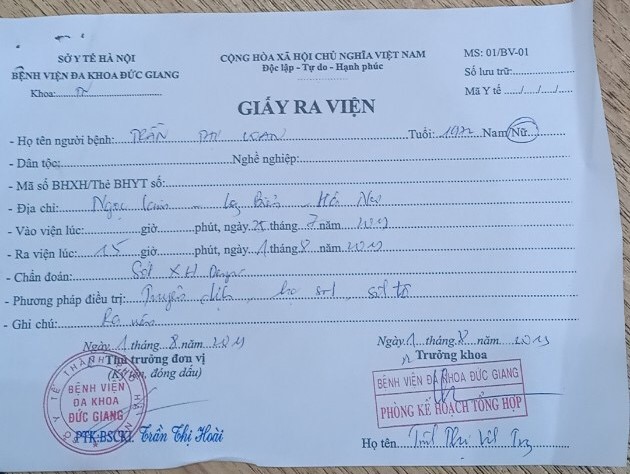 SỞ Y TẾ HÀ NỘI
BỆNH VIỆN ĐA KHOA ĐỨC GIANG
Khoa:
CỘNG HÒA XÃ HỘI CHỦ NGHĨA VIỆT NAM
Độc lập - Tự do - Hạnh phúc
MS: 01/BV-01
Số lưu trữ:
Mã Y tế ..../..../....
GIẤY RA VIỆN
- Họ tên người bệnh: TRẦN Tuổi: Nam/Nữ
- Dân tộc: Nghề nghiệp:
- Mã số BHXH/Thẻ BHYT số:
- Địa chỉ: Ngọc Long Biên Hà Nội
- Vào viện lúc: giờ phút, ngày 25 tháng 7 năm
- Ra viện lúc: 15 giờ phút, ngày 1 tháng 8 năm
- Chẩn đoán: Sốt XH Dengue
- Phương pháp điều trị: Truyền dịch, hạ sốt,
- Ghi chú: Ra viện
Ngày 1 tháng 8 năm
Thủ trưởng đơn vị
(Ký tên, đóng dấu)
SỞ Y TẾ THÀNH PHỐ HÀ NỘI
BỆNH VIỆN
ĐA KHOA
ĐỨC GIANG
PTK.BSCKI. Trần Thị Hoài
Ngày 1 tháng 8 năm
Trưởng khoa
BỆNH VIỆN ĐA KHOA ĐỨC GIANG
PHÒNG KẾ HOẠCH TỔNG HỢP
Họ tên